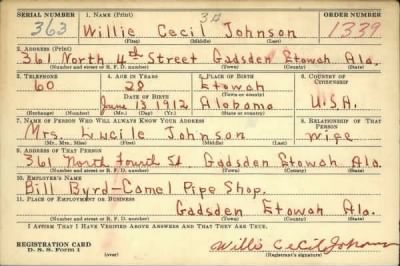 SERIAL NUMBER 1. NAME (Print) ORDER NUMBER
363 Willie Cecil Johnson 1339
(First) (Middle) (Last)
2. ADDRESS (Print)
361 North 4th Street Gadsden Etowah Ala.
(Number and street or R. F. D. number) (Town) (County) (State)
3. TELEPHONE 4. AGE IN YEARS 5. PLACE OF BIRTH 6. COUNTRY OF CITIZENSHIP
60 28 Etowah
DATE OF BIRTH (Town or county)
June 13 1912 Alabama U.S.A.
(Exchange) (Number) (Mo.) (Day) (Yr.) (State or country)
7. NAME OF PERSON WHO WILL ALWAYS KNOW YOUR ADDRESS 8. RELATIONSHIP OF THAT PERSON
Mrs. Lucile Johnson wife
(Mr., Mrs., Miss) (First) (Middle) (Last)
9. ADDRESS OF THAT PERSON
361 North Fourth St Gadsden Etowah Ala.
(Number and street or R. F. D. number) (Town) (County) (State)
10. EMPLOYER'S NAME
Bill Byrd-Camel Pipe Shop.
11. PLACE OF EMPLOYMENT OR BUSINESS
Gadsden Etowah Ala.
(Number and street or R. F. D. number) (Town) (County) (State)
I AFFIRM THAT I HAVE VERIFIED ABOVE ANSWERS AND THAT THEY ARE TRUE.
REGISTRATION CARD
D. S. S. Form 1
Willie Cecil Johnson
(Registrant's signature)